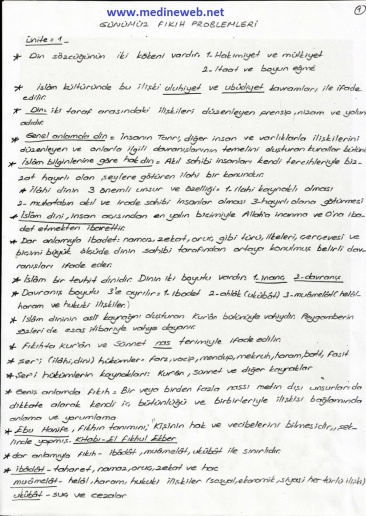 www.medineweb.net
1
GÜNÜMÜZ FIKIH PROBLEMLERİ
ünite = 1
* Din sözcüğünün iki kökeni vardır. 1. Hakimiyet ve mülkiyet
2. İtaat ve boyun eğme
* İslâm kültüründe bu ilişki uluhiyet ve ubûdiyet kavramları ile ifade
edilir.
* Din: iki taraf arasındaki ilişkileri düzenleyen prensip, nizam ve yolun
adıdır.
* Genel anlamda din = İnsanın Tanrı, diğer insan ve varlıklarla ilişkilerini
düzenleyen ve onlarla ilgili davranışlarının temelini oluşturan kurallar bütünü
* İslâm bilginlerine göre hak din = Akıl sahibi insanları kendi tercihleriyle biz-
zat hayrlı olan şeylere götüren ilahi bir kanundur.
* İlâhi dinin 3 önemli unsur ve özelliği = 1. ilahi kaynaklı olması
2. muhatabın akıl ve irade sahibi insanlar olması 3. hayırlı olana götürmesi
* İslâm dini, insan açısından en yalın biçimiyle Allah'a inanma ve O'na iba-
det etmekten ibarettir.
* Dar anlamıyla ibadet: namaz, zekat, oruç, gibi türü, ilkeleri, çerçevesi ve
biçimi büyük ölçüde dinin sahibi tarafından ortaya konulmuş belirli dav-
ranışları ifade eder.
* İslâm bir tevhit dinidir. Dinin iki boyutu vardır. 1. inanç 2. davranış
* Davranış boyutu 3'e ayrılır: 1. ibadet 2. ahlâk (ukûbât) 3. muâmelât (helâl,
haram ve hukuki ilişkiler)
* İslâm dininin asli kaynağını oluşturan Kur'ân bütünüyle vahiydir. Peygamberin
sözleri de esas itibariyle vahye dayanır.
* Fıkıhta Kur'ân ve Sünnet nas terimiyle ifade edilir.
* Şer'i (ilâhi, dini) hükümler = Farz, vacip, mendup, mekruh, haram, batıl, fasit
* Şer'i hükümlerin kaynakları: Kurân, sünnet ve diğer kaynaklar
* Geniş anlamda fıkıh = Bir veya birden fazla nassı metin dışı unsurları da
dikkate alarak kendi iç bütünlüğü ve birbirleriyle ilişkisi bağlamında
anlama ve yorumlama
* Ebu Hanife, fıkhın tanımını; Kişinin hak ve vecibelerini bilmesidir,, şek-
linde yapmış. Kitabı = El Fıkhul Ekber
* dar anlamıyla fıkıh = İbâdât, muâmelât, ukûbât ile sınırlıdır.
* ibâdât = taharet, namaz, oruç, zekat ve hac
muâmelât = helâl, haram, hukuki ilişkiler (sosyal, ekonomik, siyasi her türlü ilişki)
ukûbât = suç ve cezalar